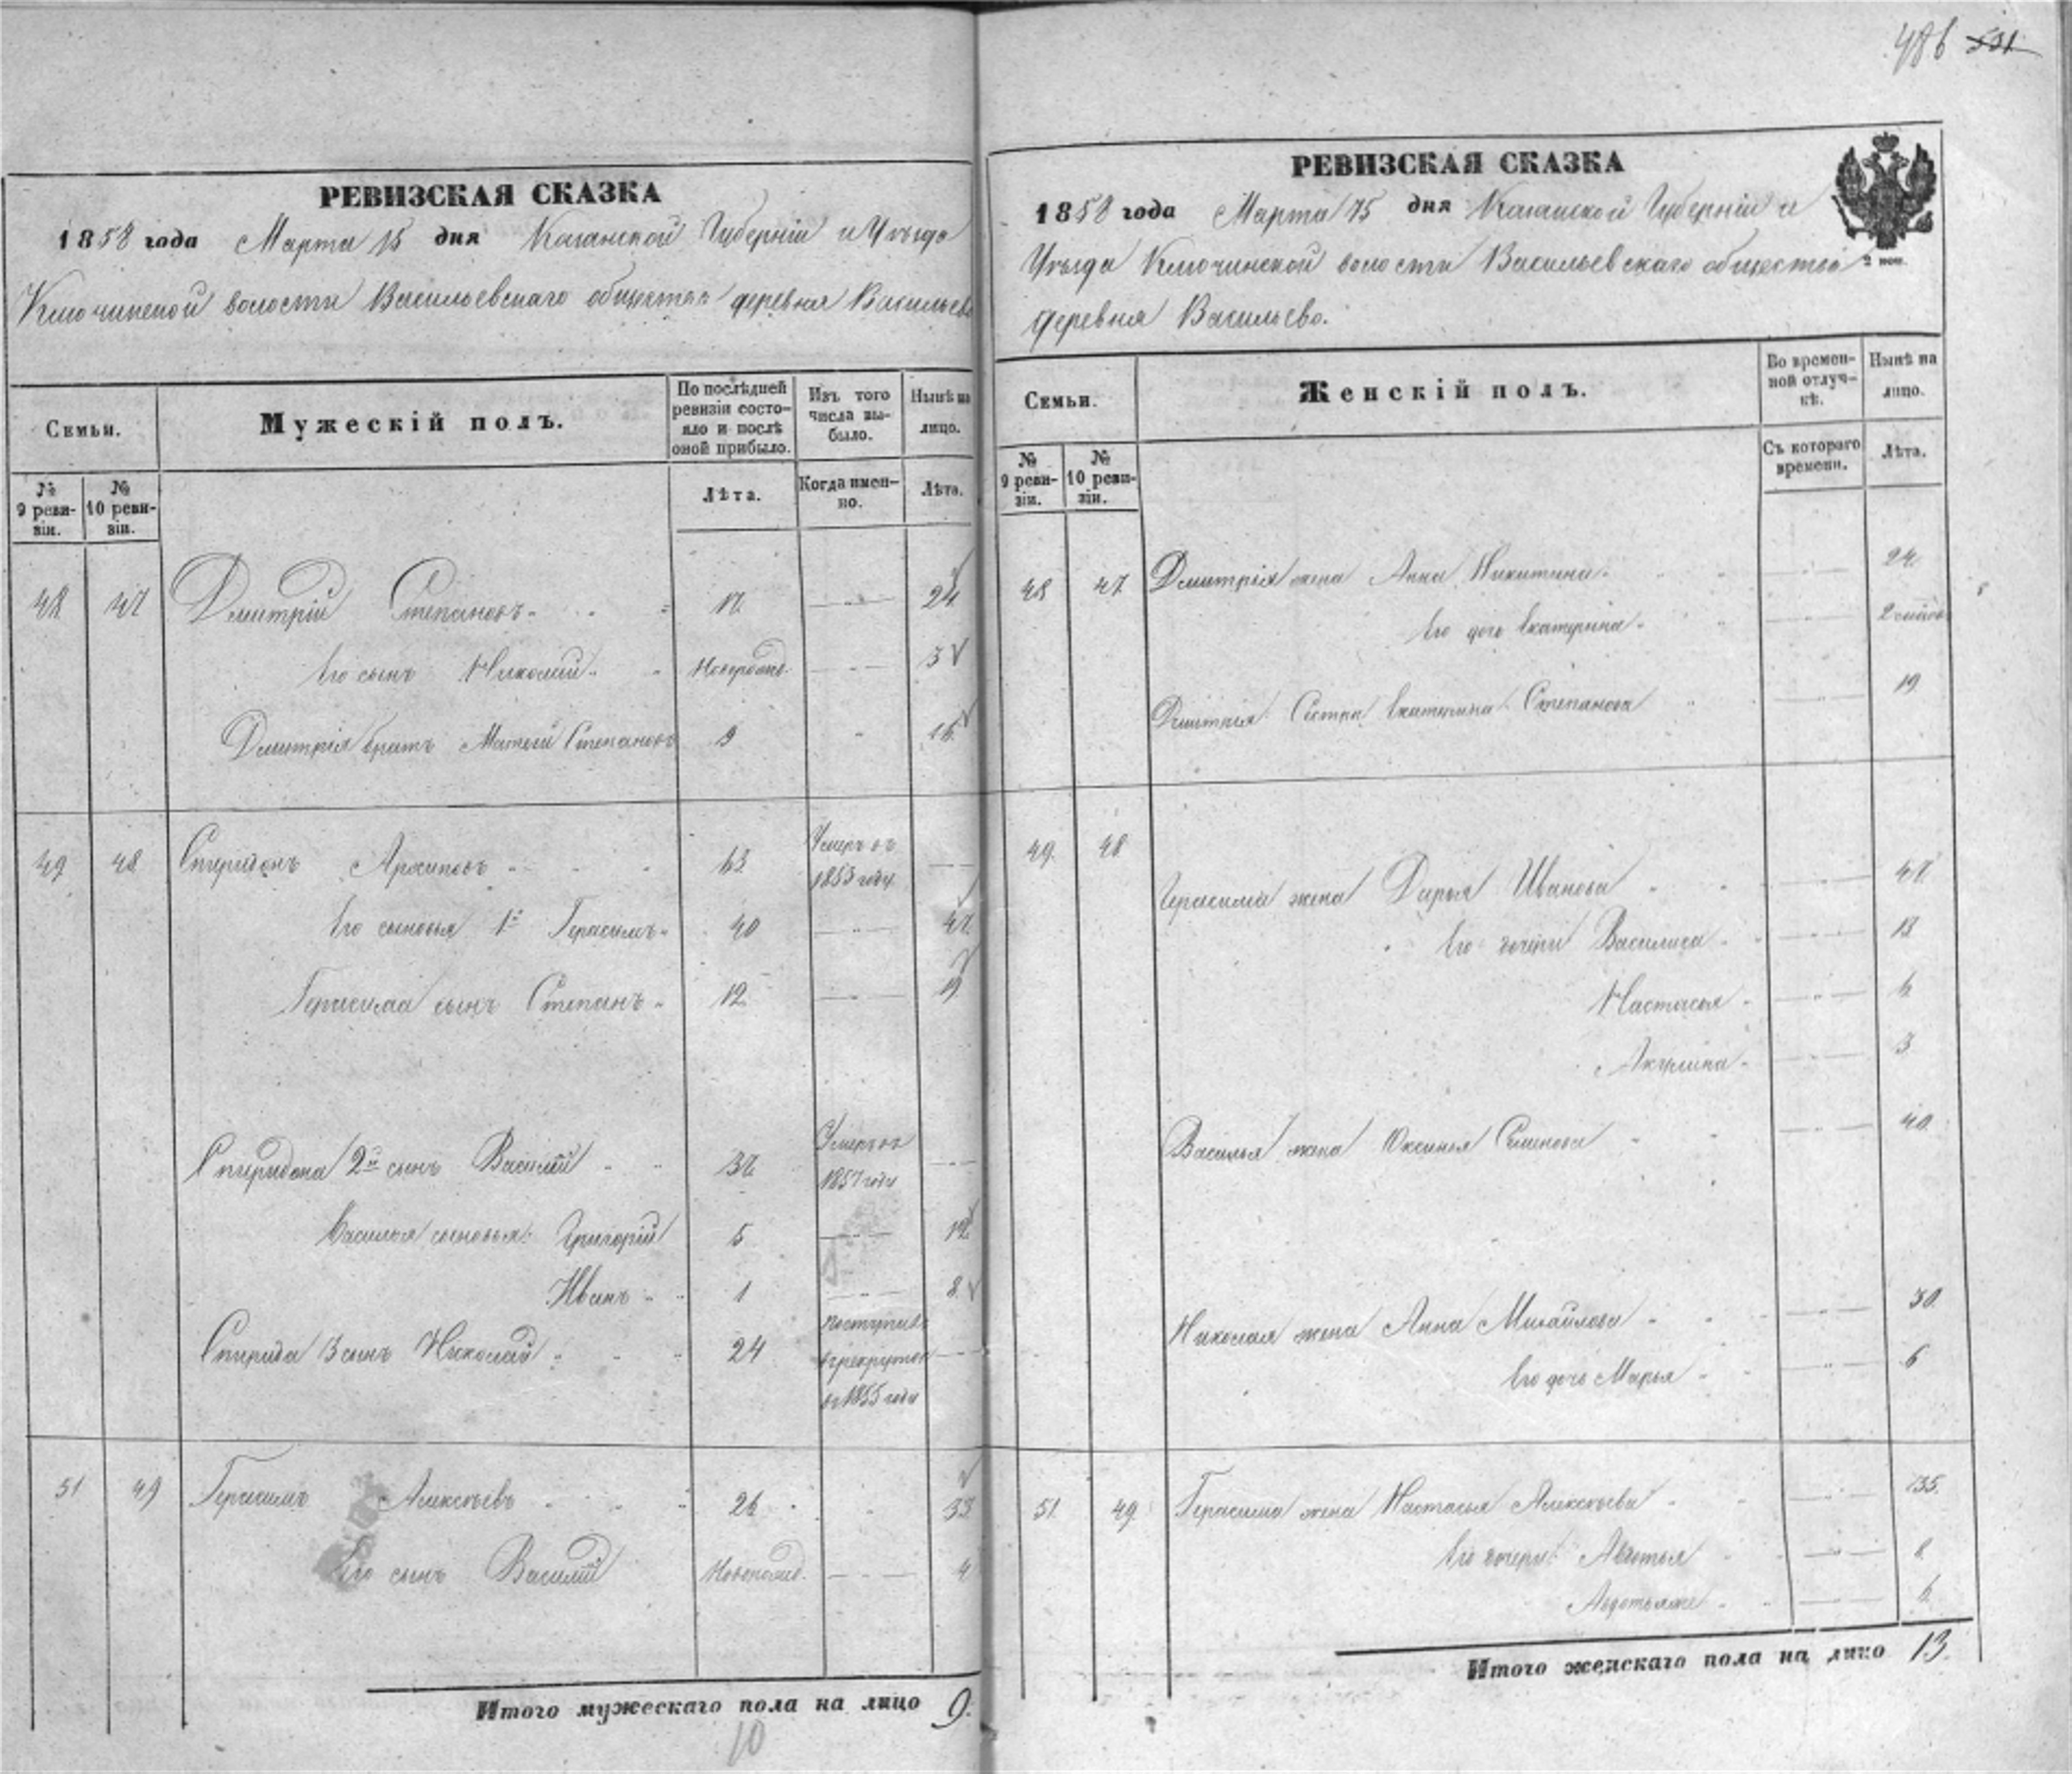 486 531
РЕВИЗСКАЯ СКАЗКА
1858 года Марта 15 дня Казанской Губерніи и Уѣзда
Ключинской волости Васильевскаго общества деревня Васильево
Семьи.
Мужескій полъ.
По послѣдней ревизіи состояло и послѣ оной прибыло.
Изъ того числа выбыло.
Нынѣ на лицо.
№ 9 ревизіи.
№ 10 ревизіи.
Лѣта.
Когда именно.
Лѣта.
48 47 Дмитрій Степановъ 17 24
Его сынъ Николай Новорожд. 3
Дмитрія братъ Матвей Степановъ 9 16
49 48 Спиридонъ Архиповъ 63 Умеръ въ 1853 году
Его сыновья 1й Герасимъ 40 47
Герасима сынъ Степанъ 12 19
Спиридона 2й сынъ Василій 37 Умеръ въ 1857 году
Василья сыновья: Григорій 5 12
Иванъ 1 8
Спирида 3 сынъ Николай 24 поступилъ в рекруты в 1855 году
51 49 Герасимъ Алексѣевъ 26 33
Его сынъ Василій 4
Итого мужескаго пола на лицо 9.
10
РЕВИЗСКАЯ СКАЗКА
1858 года Марта 15 дня Казанской Губерніи и
Уѣзда Ключинской волости Васильевскаго общества
деревня Васильево.
2 коп.
Семьи.
Женскій полъ.
Во временной отлучкѣ.
Нынѣ на лицо.
№ 9 ревизіи.
№ 10 ревизіи.
Съ котораго времени.
Лѣта.
48 47 Дмитрія жена Анна Никитина 24
Его дочь Екатерина
Дмитрія Сестра Екатерина Степанова 19
49 48
Герасима жена Дарья Иванова 47
Его дочери Василиса 13
Настасья 6
Акулина 3
Василья жена Оксинья Семенова 40
Николая жена Анна Михайлова 30
Его дочь Марья 6
51 49 Герасима жена Настасья Алексѣева 35
Его дочери: Авдотья 8
Авдотья же 6
Итого женскаго пола на лицо 13.